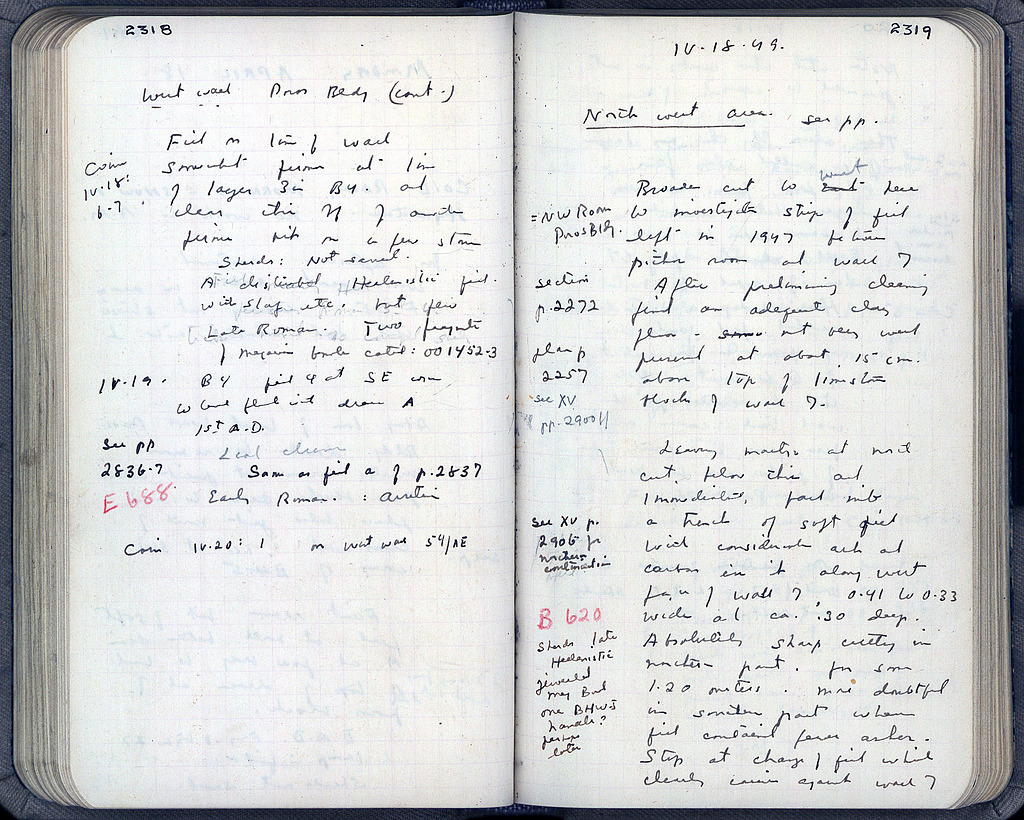 2318
West wall Poros Bldg (cont.)
Fill on line of wall
Coin
IV.18:
6-7
Somewhat firmer at line
of layer 3 in B4 and
clear this off of another
firmer with on a few stones
Sherds: Not saved.
A Hellenistic fill.
with slag etc. but few
Late Roman. Two fragments
of megarian bowls catal: 001452-3
IV.19. B4 fill 4 at SE corner
1st A.D.
See pp
2836-7
Same as fill a of p. 2837
E 688.
Early Roman. : arretine
Coin IV.20: 1 on west wall 54/AE
2319
IV.18.49.
North west area. see pp.
Broaden cut to west here
=NW Room
Poros Bldg.
to investigate strip of fill
left in 1947 between
pithos room and wall 7
section
p. 2272
After preliminary cleaning
find an adequate clay
floor - some not very well
plan p
2257
preserved at about 15 cm.
above top of limestone
blocks of wall 7.
see XV
pp. 2900ff
Leaving matter at north
cut, below this and
immediately, part into
a trench of soft fill
see XV p.
2906 for
northern
continuation
with considerable ash and
carbon in it along west
face of wall 7, 0.41 to 0.33
wide and ca. .30 deep.
B 620
Sherds late
Hellenistic
one BHWS
handle?
perhaps
later
Absolutely sharp cutting in
northern part. for some
1.20 meters. more doubtful
in southern part where
fill contained fewer ashes.
Stop at change of fill while
clearly against wall 7